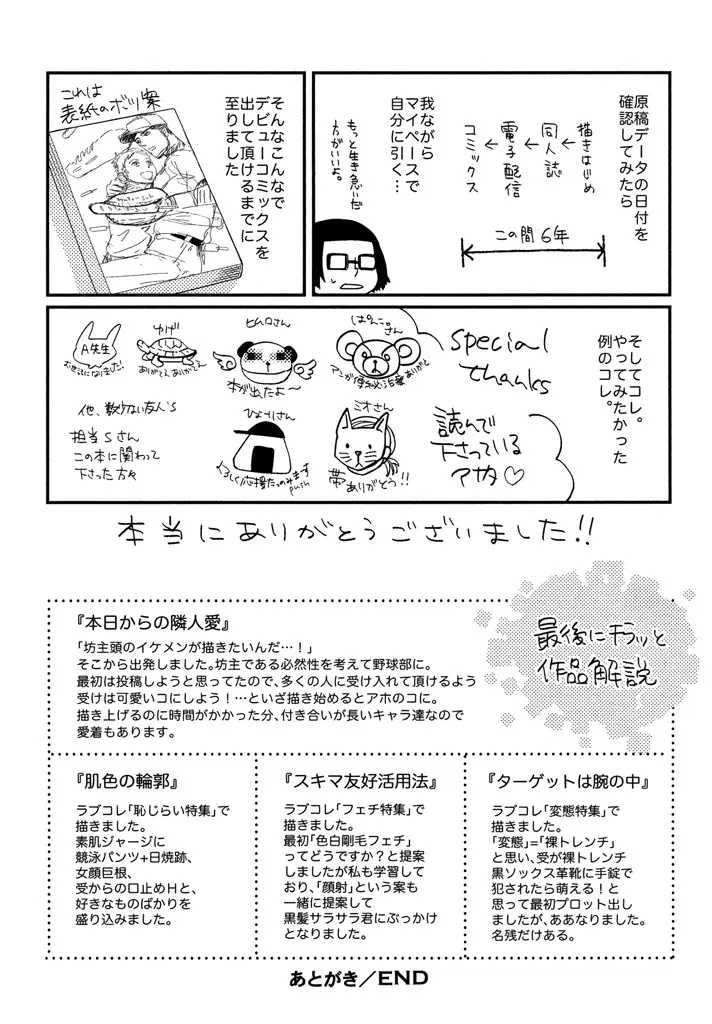 原稿データの日付を
確認してみたら
描きはじめ
↓
同人誌
↓
電子配信
↓
コミックス
この間6年
我ながら
マイペースで
自分に引く…
もっと生き急いだ
方がいいよ。
そんなこんなで
デビューコミックスを
出して頂けるまでに
至りました
これは
表紙のボツ案
そしてコレ。
やってみたかった
例のコレ。
special
thanks
読んで
下さっている
アナタ♡
ぱんこ。さん
ヒムロさん
本が出たよ〜
ゆげ
ありがてえありがてえ
A先生
お世話になりました!
ミオさん
帯ありがとう!!
ひより さん
よろしく応援たのみます
push
他、数々ない友人's
担当Sさん
この本に関わって
下さった方々
本当にありがとうございました!!
最後にチラッと
作品解説
『本日からの隣人愛』
「坊主頭のイケメンが描きたいんだ…!」
そこから出発しました。坊主である必然性を考えて野球部に。
最初は投稿しようと思ってたので、多くの人に受け入れて頂けるよう
受けは可愛いコにしよう!…といざ描き始めるとアホのコに。
描き上げるのに時間がかかった分、付き合いが長いキャラ達なので
愛着もあります。
『ターゲットは腕の中』
ラブコレ「変態特集」で
描きました。
「変態」=「裸トレンチ」
と思い、受が裸トレンチ
黒ソックス革靴に手錠で
犯されたら萌える!と
思って最初プロット出し
ましたが、ああなりました。
名残だけある。
『スキマ友好活用法』
ラブコレ「フェチ特集」で
描きました。
最初「色白剛毛フェチ」
ってどうですか?と提案
しましたが私も学習して
おり、「顔射」という案も
一緒に提案して
黒髪サラサラ君にぶっかけ
となりました。
『肌色の輪郭』
ラブコレ「恥じらい特集」で
描きました。
素肌ジャージに
競泳パンツ+日焼跡、
女顔巨根、
受からの口止めHと、
好きなものばかりを
盛り込みました。
あとがき/END